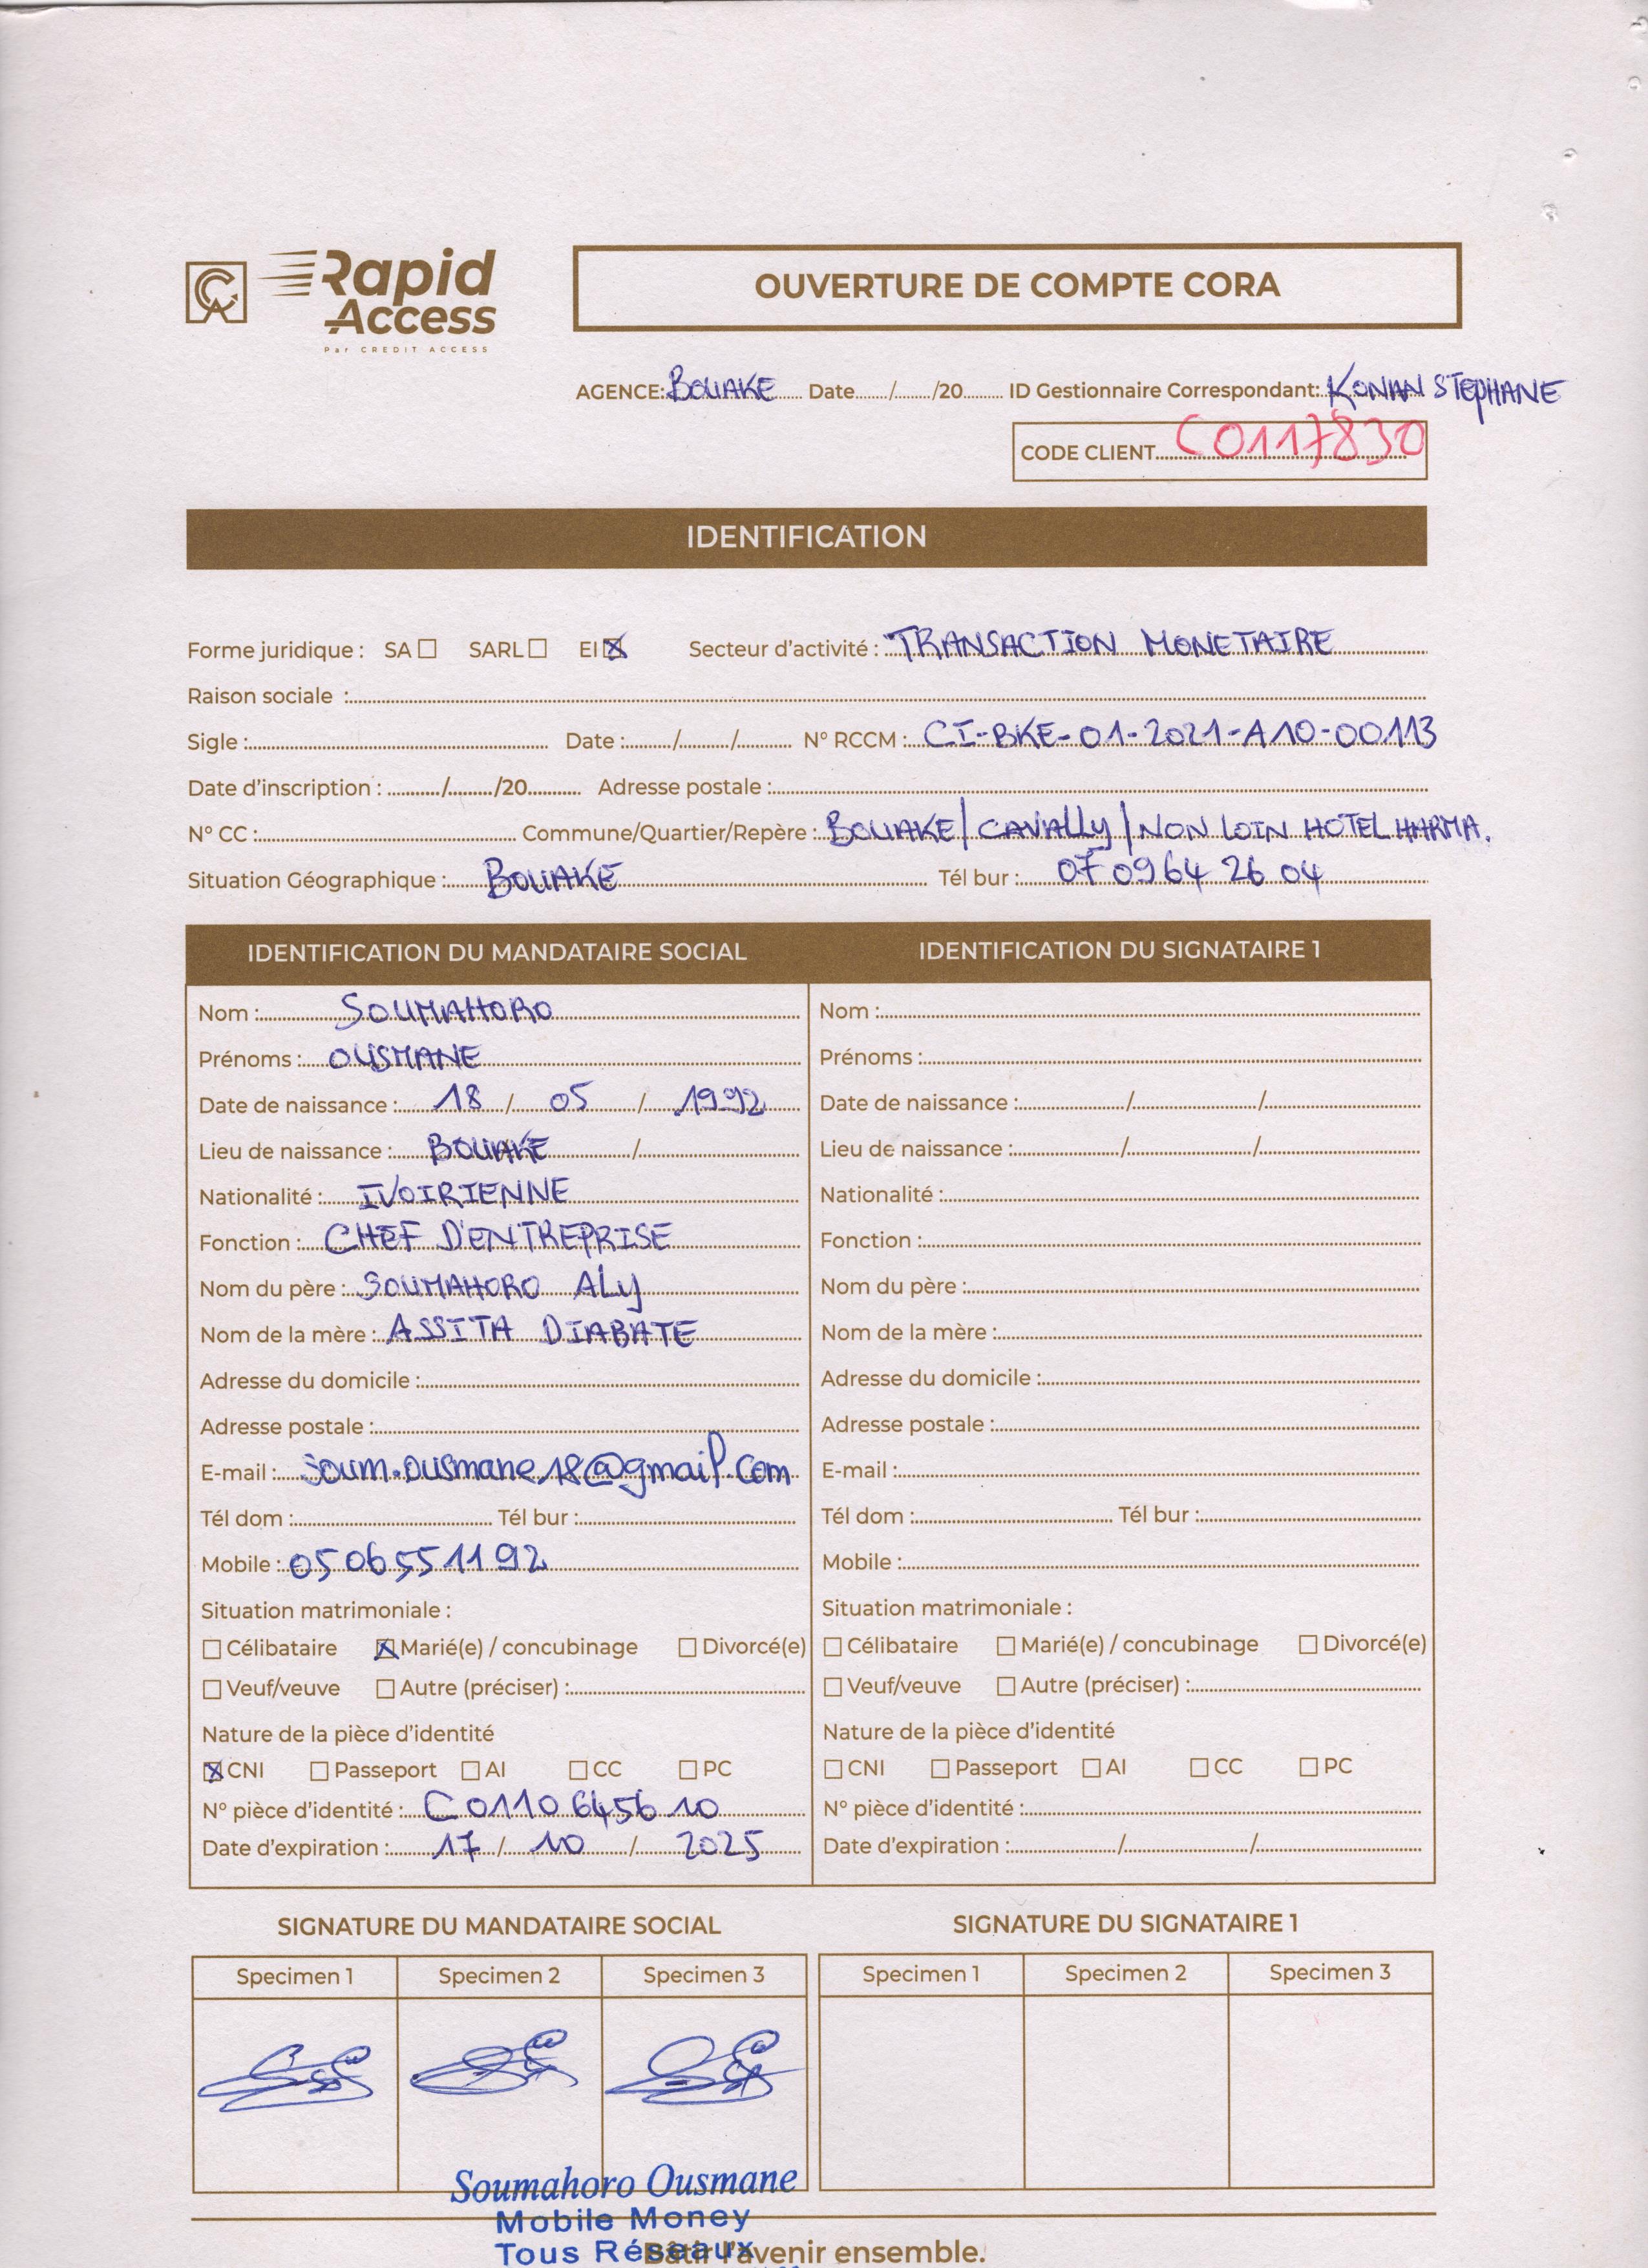 CA Rapid Access
Par CREDIT ACCESS
OUVERTURE DE COMPTE CORA
AGENCE: BOUAKE Date....../....../20...... ID Gestionnaire Correspondant: KONAN STEPHANE
CODE CLIENT C0117830
IDENTIFICATION
Forme juridique : SA ☐ SARL ☐ EI ☒ Secteur d'activité : TRANSACTION MONETAIRE
Raison sociale :
Sigle : Date :....../....../...... N° RCCM : CI-BKE-01-2021-A10-00113
Date d'inscription : ....../....../20...... Adresse postale :
N° CC : Commune/Quartier/Repère : BOUAKE/CAVALLY/NON LOIN HOTEL HARMA.
Situation Géographique : BOUAKE Tél bur : 07 09 64 26 04
IDENTIFICATION DU MANDATAIRE SOCIAL
Nom : SOUMAHORO
Prénoms : OUSMANE
Date de naissance : 18 / 05 / 1992
Lieu de naissance : BOUAKE /
Nationalité : IVOIRIENNE
Fonction : CHEF D'ENTREPRISE
Nom du père : SOUMAHORO ALY
Nom de la mère : ASSITA DIABATE
Adresse du domicile :
Adresse postale :
E-mail : soum.ousmane18@gmail.com
Tél dom : Tél bur :
Mobile : 05 06 55 11 92
Situation matrimoniale :
☐ Célibataire ☒ Marié(e) / concubinage ☐ Divorcé(e)
☐ Veuf/veuve ☐ Autre (préciser) :
Nature de la pièce d'identité
☒ CNI ☐ Passeport ☐ AI ☐ CC ☐ PC
N° pièce d'identité : C 01106456 10
Date d'expiration : 17 / 10 / 2025
IDENTIFICATION DU SIGNATAIRE 1
Nom :
Prénoms :
Date de naissance :....../....../......
Lieu de naissance :....../....../......
Nationalité :
Fonction :
Nom du père :
Nom de la mère :
Adresse du domicile :
Adresse postale :
E-mail :
Tél dom : Tél bur :
Mobile :
Situation matrimoniale :
☐ Célibataire ☐ Marié(e) / concubinage ☐ Divorcé(e)
☐ Veuf/veuve ☐ Autre (préciser) :
Nature de la pièce d'identité
☐ CNI ☐ Passeport ☐ AI ☐ CC ☐ PC
N° pièce d'identité :
Date d'expiration :....../....../......
SIGNATURE DU MANDATAIRE SOCIAL
Specimen 1 Specimen 2 Specimen 3
SIGNATURE DU SIGNATAIRE 1
Specimen 1 Specimen 2 Specimen 3
Soumahoro Ousmane
Mobile Money
Tous Réseaux
Bâtir l'avenir ensemble.